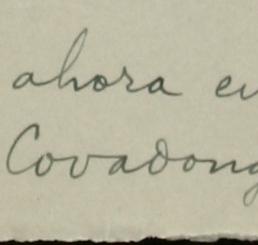 ahora en
Covadong